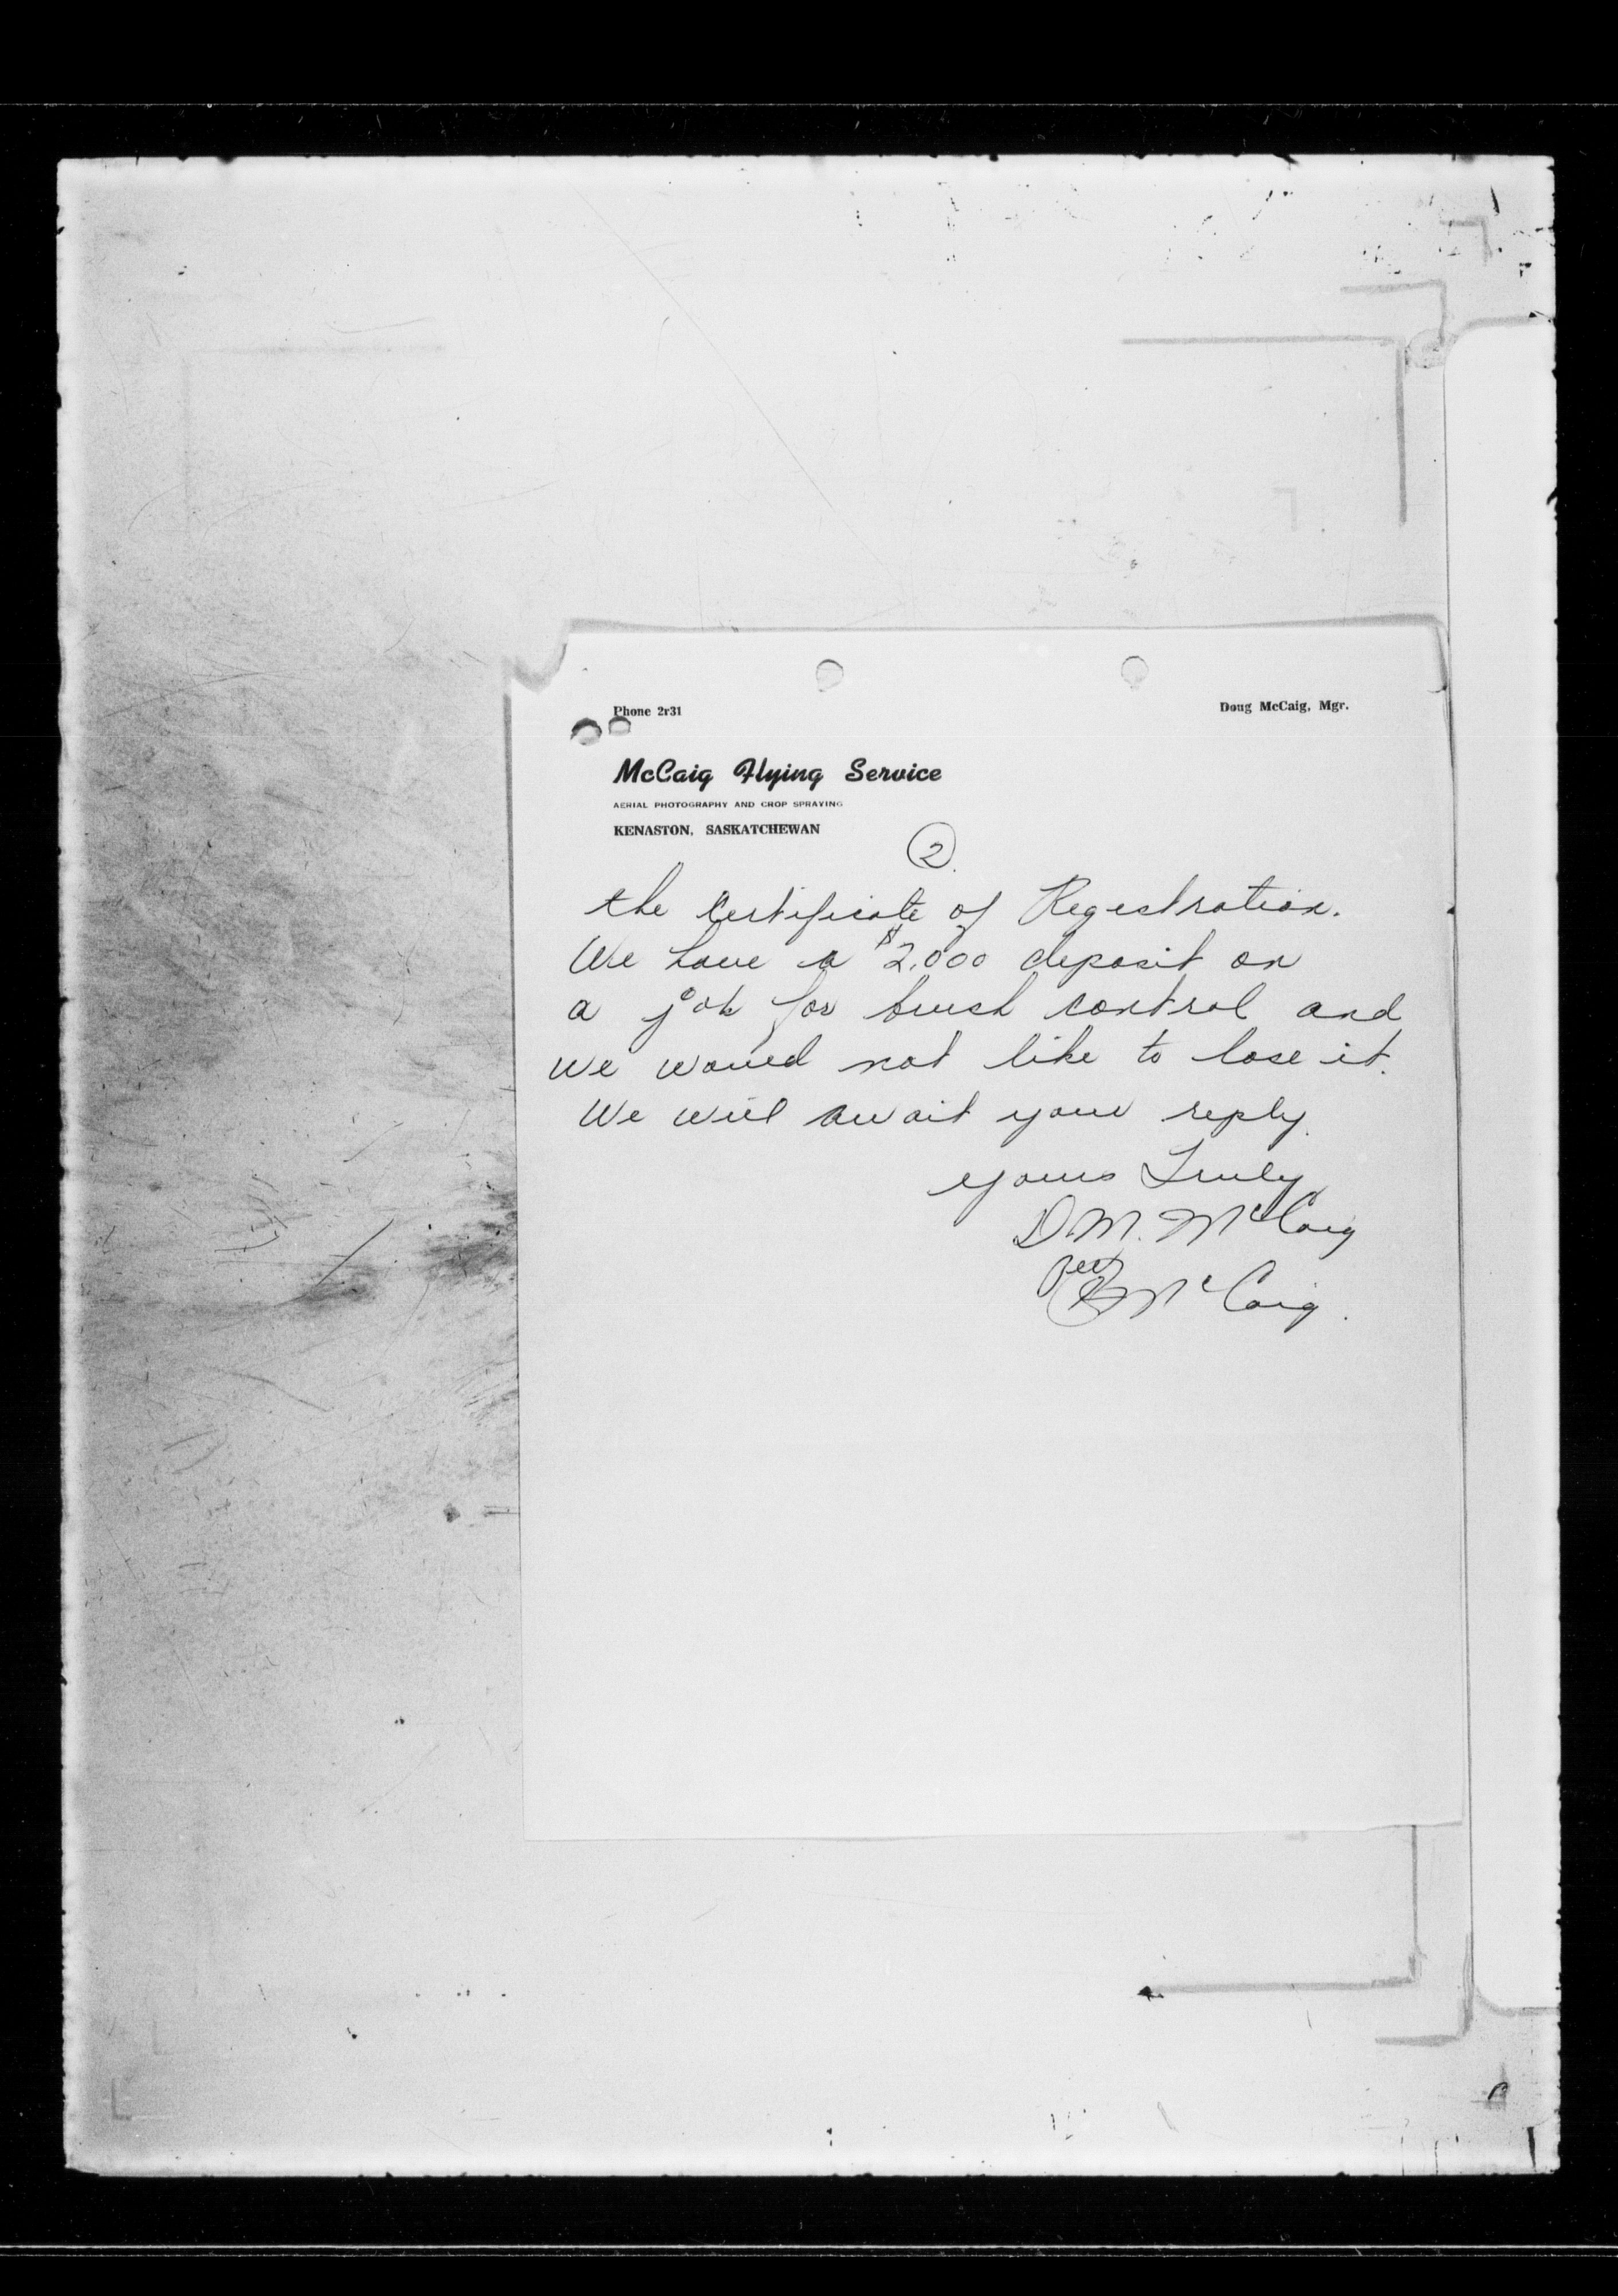 Phone 2r31
Doug McCaig, Mgr.
McCaig Flying Service
AERIAL PHOTOGRAPHY AND CROP SPRAYING
KENASTON, SASKATCHEWAN
2.
the Certificate of Regestration.
We have a $2,000 deposit on
a job for brush control and
we would not like to lose it.
We will await your reply.
Yours Truly
D.M. McCaig
per
McCaig.